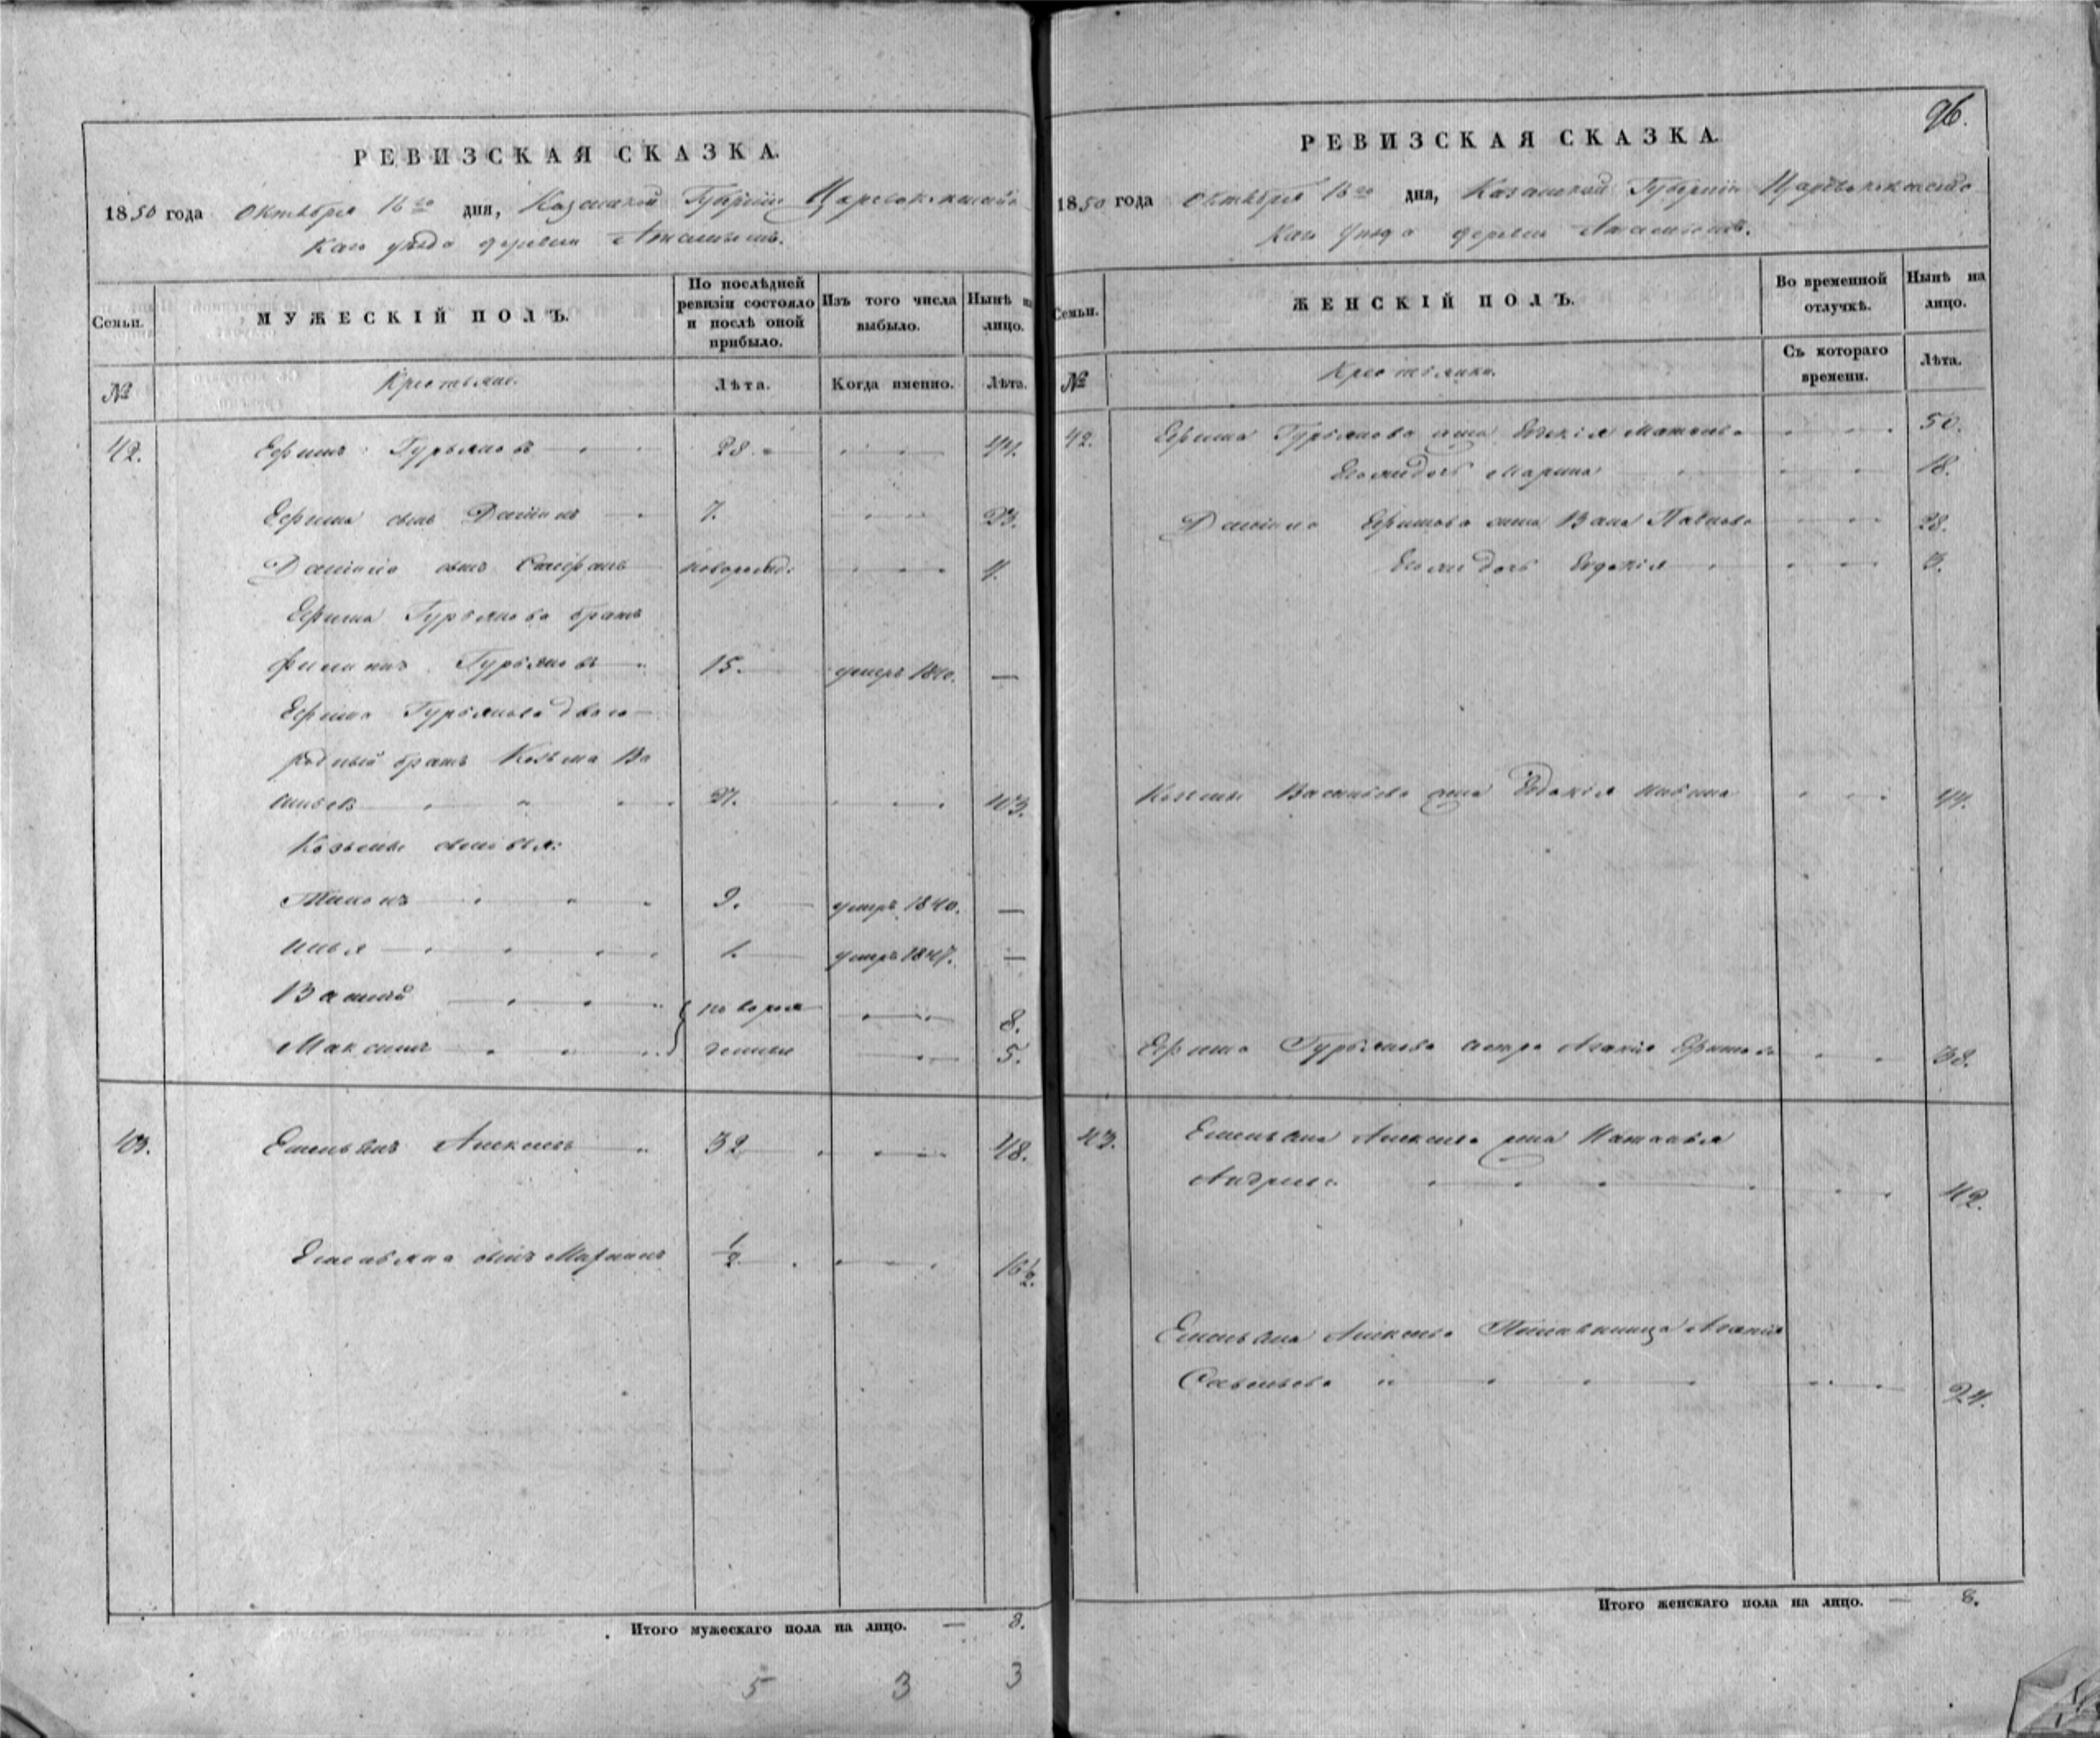 РЕВИЗСКАЯ СКАЗКА.
1850 года Октября 16го дня, Казанской Губернiи Царевококшайс
каго уѣзда деревни
Семьи.
МУЖЕСКІЙ ПОЛЪ.
По послѣдней ревизіи состояло и послѣ оной прибыло.
Изъ того числа выбыло.
Нынѣ на лицо.
№
Крестьяне.
Лѣта.
Когда именно.
Лѣта.
42. Ефимъ Гурьяновъ 28. 44.
Ефима сынъ Даніилъ 7. 23.
Даніила сынъ Стефанъ новорожд: 4.
Ефима Гурьянова братъ
Филипъ Гурьяновъ 15. умеръ 1840. —
Ефима Гурьянова двою-
родный братъ Козьма Ва
сильевъ 27. 43.
Козьмы сыновья:
9. умеръ 1840. —
Илья 1. умеръ 1847. —
Василій новорож 8.
Максимъ денные 5.
43. Емельянъ Алексѣевъ 32 48.
Емельяна сынъ 1/2 16 1/2.
Итого мужескаго пола на лицо. — 8.
5 3 3
96.
РЕВИЗСКАЯ СКАЗКА.
1850 года Октября 16го дня, Казанской Губернiи Царевококшайс
каго уѣзда деревни
Семьи.
ЖЕНСКІЙ ПОЛЪ.
Во временной отлучкѣ.
Нынѣ на лицо.
№
Крестьянки.
Съ котораго времени.
Лѣта.
42. Ефима Гурьянова жена Евдокія 50.
Его же дочь Марина 18.
Даніила Ефимова жена Павлова 28.
Его же дочь Евдокія 3.
Козьмы Васильева жена Евдокія 44.
Ефима Гурьянова сестра Ефимова 38.
43. Емельяна Алексѣева жена Наталья
Андреева 42.
Емельяна Алексѣева племянница
Савельева 24.
Итого женскаго пола на лицо. — 8.